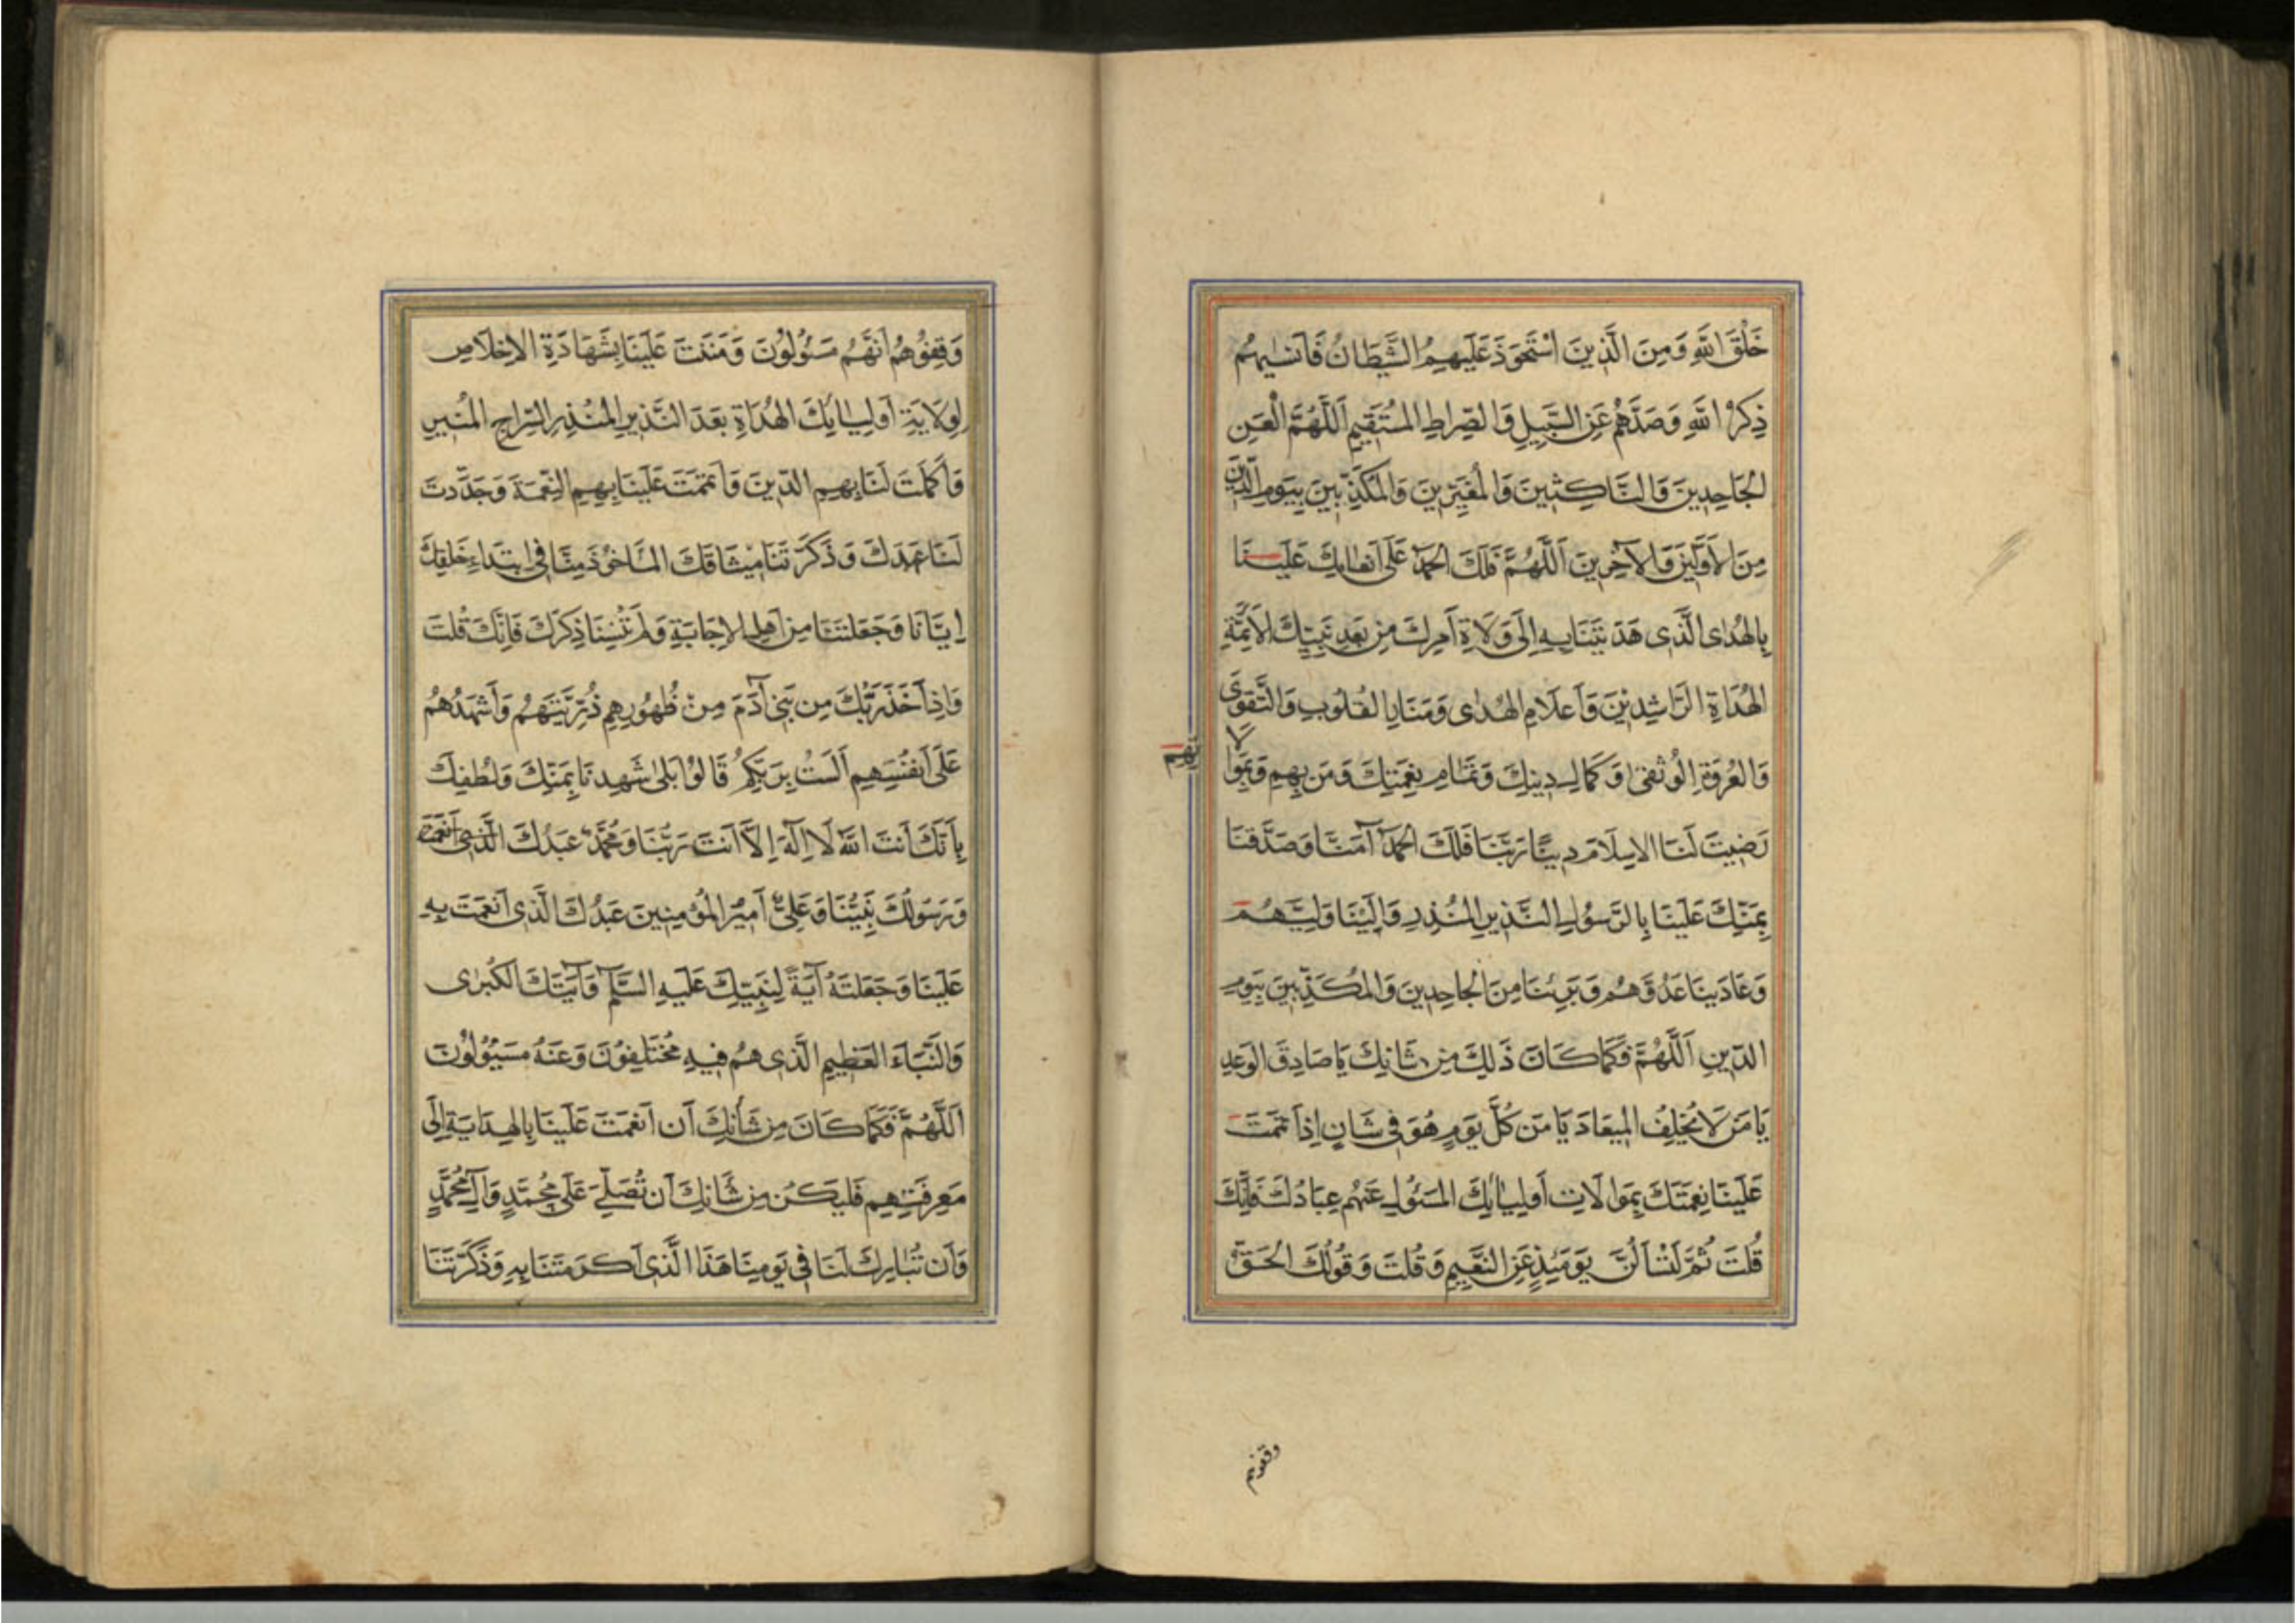 خَلْقَ اللَّهِ وَمِنَ الَّذِينَ اسْتَحْوَذَ عَلَيْهِمُ الشَّيْطَانُ فَاَنْسٰيهُمْ
ذِكْرَ اللَّهِ وَصَدَّهُمْ عَنِ السَّبِيلِ وَالصِّرَاطِ الْمُسْتَقِيمِ اَللَّهُمَّ الْعَنِ
الْجَاحِدِينَ وَالنَّاكِثِينَ وَالْمُغَيِّرِينَ وَالْمُكَذِّبِينَ بِيَوْمِ الدِّينِ
مِنَ الْاَوَّلِينَ وَالْآخِرِينَ اَللَّهُمَّ فَلَكَ الْحَمْدُ عَلَى اِنْعَامِكَ عَلَيْنَا
بِالْهُدَى الَّذِى هَدَيْتَنَا بِهِ اِلَى وَلَاةِ اَمْرِكَ مِنْ بَعْدِ نَبِيِّكَ الْاَئِمَّةِ
الْهُدَاةِ الرَّاشِدِيْنَ وَاَعْلَامِ الْهُدٰى وَمَنَارِ الْقُلُوبِ وَالتَّقْوَى
وَالْعُرْوَةِ الْوُثْقىٰ وَكَمَالِ دِينِكَ وَتَمَامِ نِعْمَتِكَ وَمَنْ بِهِمْ وَبِمُوَا
لَا
تِهِمْ
رَضِيتَ لَنَا الْاِسْلَامَ دِينًا رَبَّنَا فَلَكَ الْحَمْدُ آمَنَّا وَصَدَّقْنَا
بِمَنِّكَ عَلَيْنَا بِالرَّسُولِ النَّذِيرِ الْمُنْذِرِ وَالَيْنَا وَلِيَّهُمْ
وَعَادَيْنَا عَدُوَّهُمْ وَبَرِئْنَا مِنَ الْجَاحِدِينَ وَالْمُكَذِّبِينَ بِيَوْمِ
الدِّينِ اَللَّهُمَّ فَكَمَا كَانَ ذَلِكَ مِنْ شَانِكَ يَا صَادِقَ الْوَعْدِ
يَا مَنْ لَا يُخْلِفُ الْمِيعَادَ يَا مَنْ كُلَّ يَوْمٍ هُوَ فِى شَانٍ اِذْ اَتْمَمْتَ
عَلَيْنَا نِعْمَتَكَ بِمُوَالَاتِ اَوْلِيَائِكَ الْمَسْئُولِ عَنْهُمْ عِبَادُكَ فَاِنَّكَ
قُلْتَ ثُمَّ لَتُسْاَلُنَّ يَوْمَئِذٍ عَنِ النَّعِيمِ وَقُلْتَ وَقَوْلُكَ الْحَقُّ
وقفوهم
وَقِفُوْهُمْ اَنَّهُمْ مَسْئُولُوْنَ وَمَنَنْتَ عَلَيْنَا بِشَهَادَةِ الْاِخْلَاصِ
لِوِلَايَةِ اَوْلِيَائِكَ الْهُدَاةِ بَعْدَ النَّذِيرِ الْمُنْذِرِ السِّرَاجِ الْمُنِيرِ
وَاَكْمَلْتَ لَنَا بِهِمِ الدِّينَ وَاَتْمَمْتَ عَلَيْنَا بِهِمِ النِّعْمَةَ وَجَدَّدْتَ
لَنَا عَهْدَكَ وَذَكَّرْتَنَا مِيْثَاقَكَ الْمَاْخُوْذَ مِنَّا فِى ابْتِدَاءِ خَلْقِكَ
اِيَّانَا وَجَعَلْتَنَا مِنْ اَهْلِ الْاِجَابَةِ وَلَمْ تُنْسِنَا ذِكْرَكَ فَاِنَّكَ قُلْتَ
وَاِذْ اَخَذَ رَبُّكَ مِنْ بَنِى آدَمَ مِنْ ظُهُورِهِمْ ذُرِّيَّتَهُمْ وَاَشْهَدَهُمْ
عَلَى اَنْفُسِهِمْ اَلَسْتُ بِرَبِّكُمْ قَالُوْا بَلىٰ شَهِدْنَا بِمَنِّكَ وَلُطْفِكَ
بِاَنَّكَ اَنْتَ اللَّهُ لَا اِلٰهَ اِلَّا اَنْتَ رَبُّنَا وَمُحَمَّدٌ عَبْدُكَ الَّذِى اَنْعَمْتَ
وَرَسُولُكَ نَبِيُّنَا وَعَلِىٌّ اَمِيرُ الْمُؤْمِنِينَ عَبْدُكَ الَّذِى اَنْعَمْتَ بِهِ
عَلَيْنَا وَجَعَلْتَهُ آيَةً لِنَبِيِّكَ عَلَيْهِ السَّلَمُ وَآيَتَكَ الْكُبْرٰى
وَالنَّبَاءَ الْعَظِيمِ الَّذِى هُمْ فِيهِ مُخْتَلِفُوْنَ وَعَنْهُ مَسْئُوْلُوْنَ
اَللَّهُمَّ فَكَمَا كَانَ مِنْ شَأْنِكَ اَنْ اَنْعَمْتَ عَلَيْنَا بِالْهِدَايَةِ اِلَى
مَعْرِفَتِهِمْ فَلْيَكُنْ مِنْ شَانِكَ اَنْ تُصَلِّىَ عَلَى مُحَمَّدٍ وَآلِ مُحَمَّدٍ
وَاَنْ تُبَارِكَ لَنَا فِى يَوْمِنَا هَذَا الَّذِى اَكْرَمْتَنَا بِهِ وَذَكَّرْتَنَا